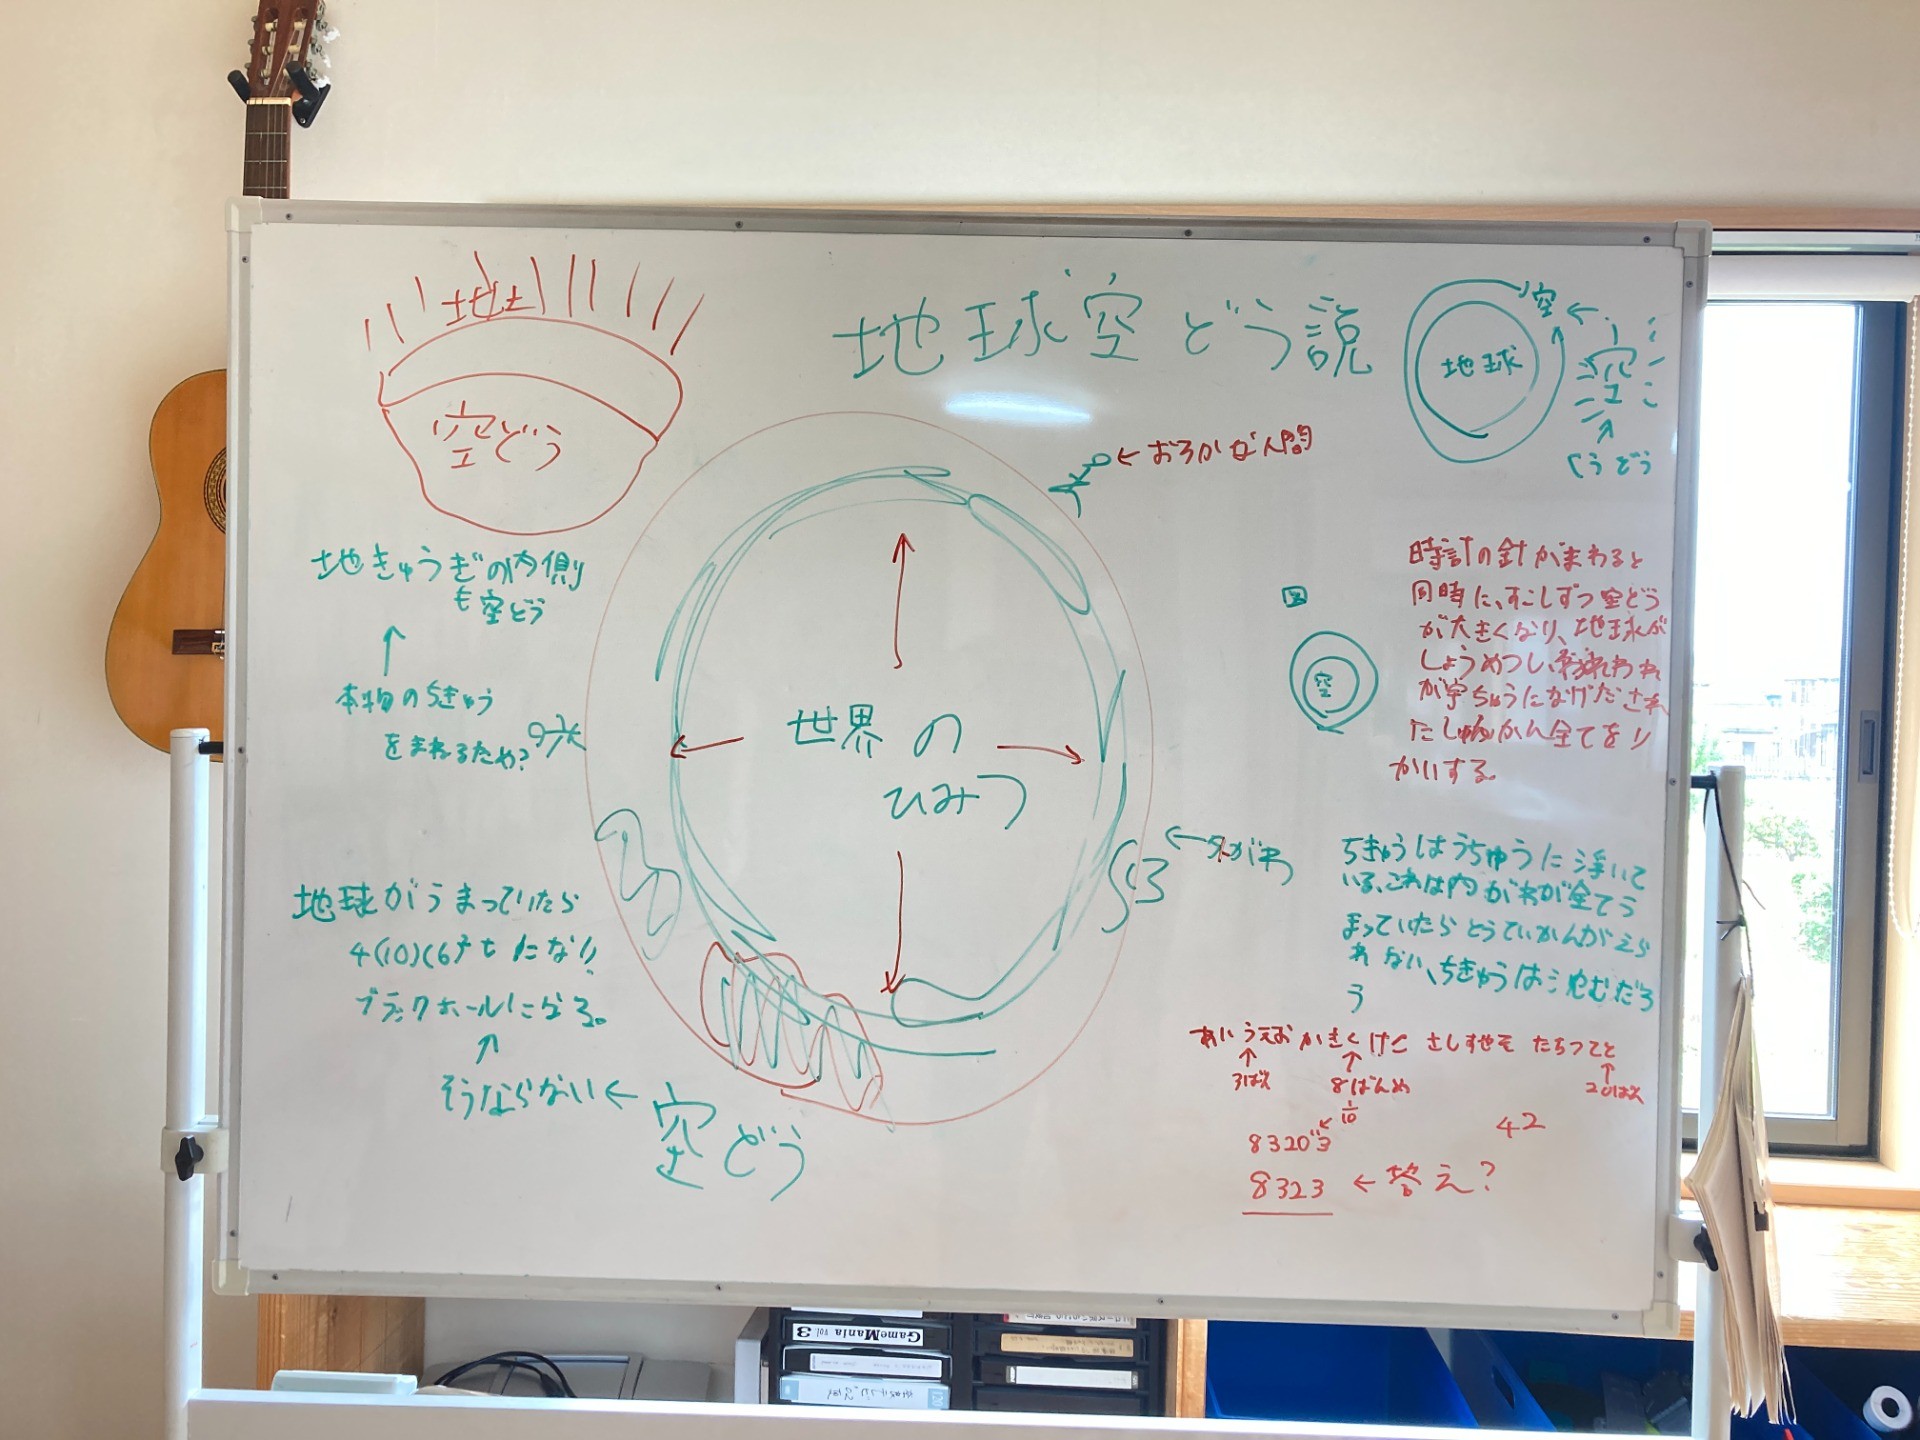 地球空どう説
地土
空どう
地球
空
空
くうどう
←おろかな人間
地きゅうぎの内側
も空どう
↑
本物のちきゅう
をまねるため?
世界の
ひみつ
図
空
時計の針がまわると
同時に、すこしずつ空どう
が大きくなり、地球が
しょうめつし、われわれ
が宇ちゅうになげだされ
たしゅんかん全てをり
かいする。
地球がうまっていたら
ブラックホールになる。
↑
そうならない←空どう
ちきゅうはうちゅうに浮いて
いる、これは内がわが全てう
まっていたらとうていかんがえら
れない、ちきゅうは沈むだろ
う
あいうえお かきくけこ さしすせそ たちつてと
3ばん
8ばんめ
20ばん
1/10
8320
3
42
8323 ←答え?
GameMania
vol 3